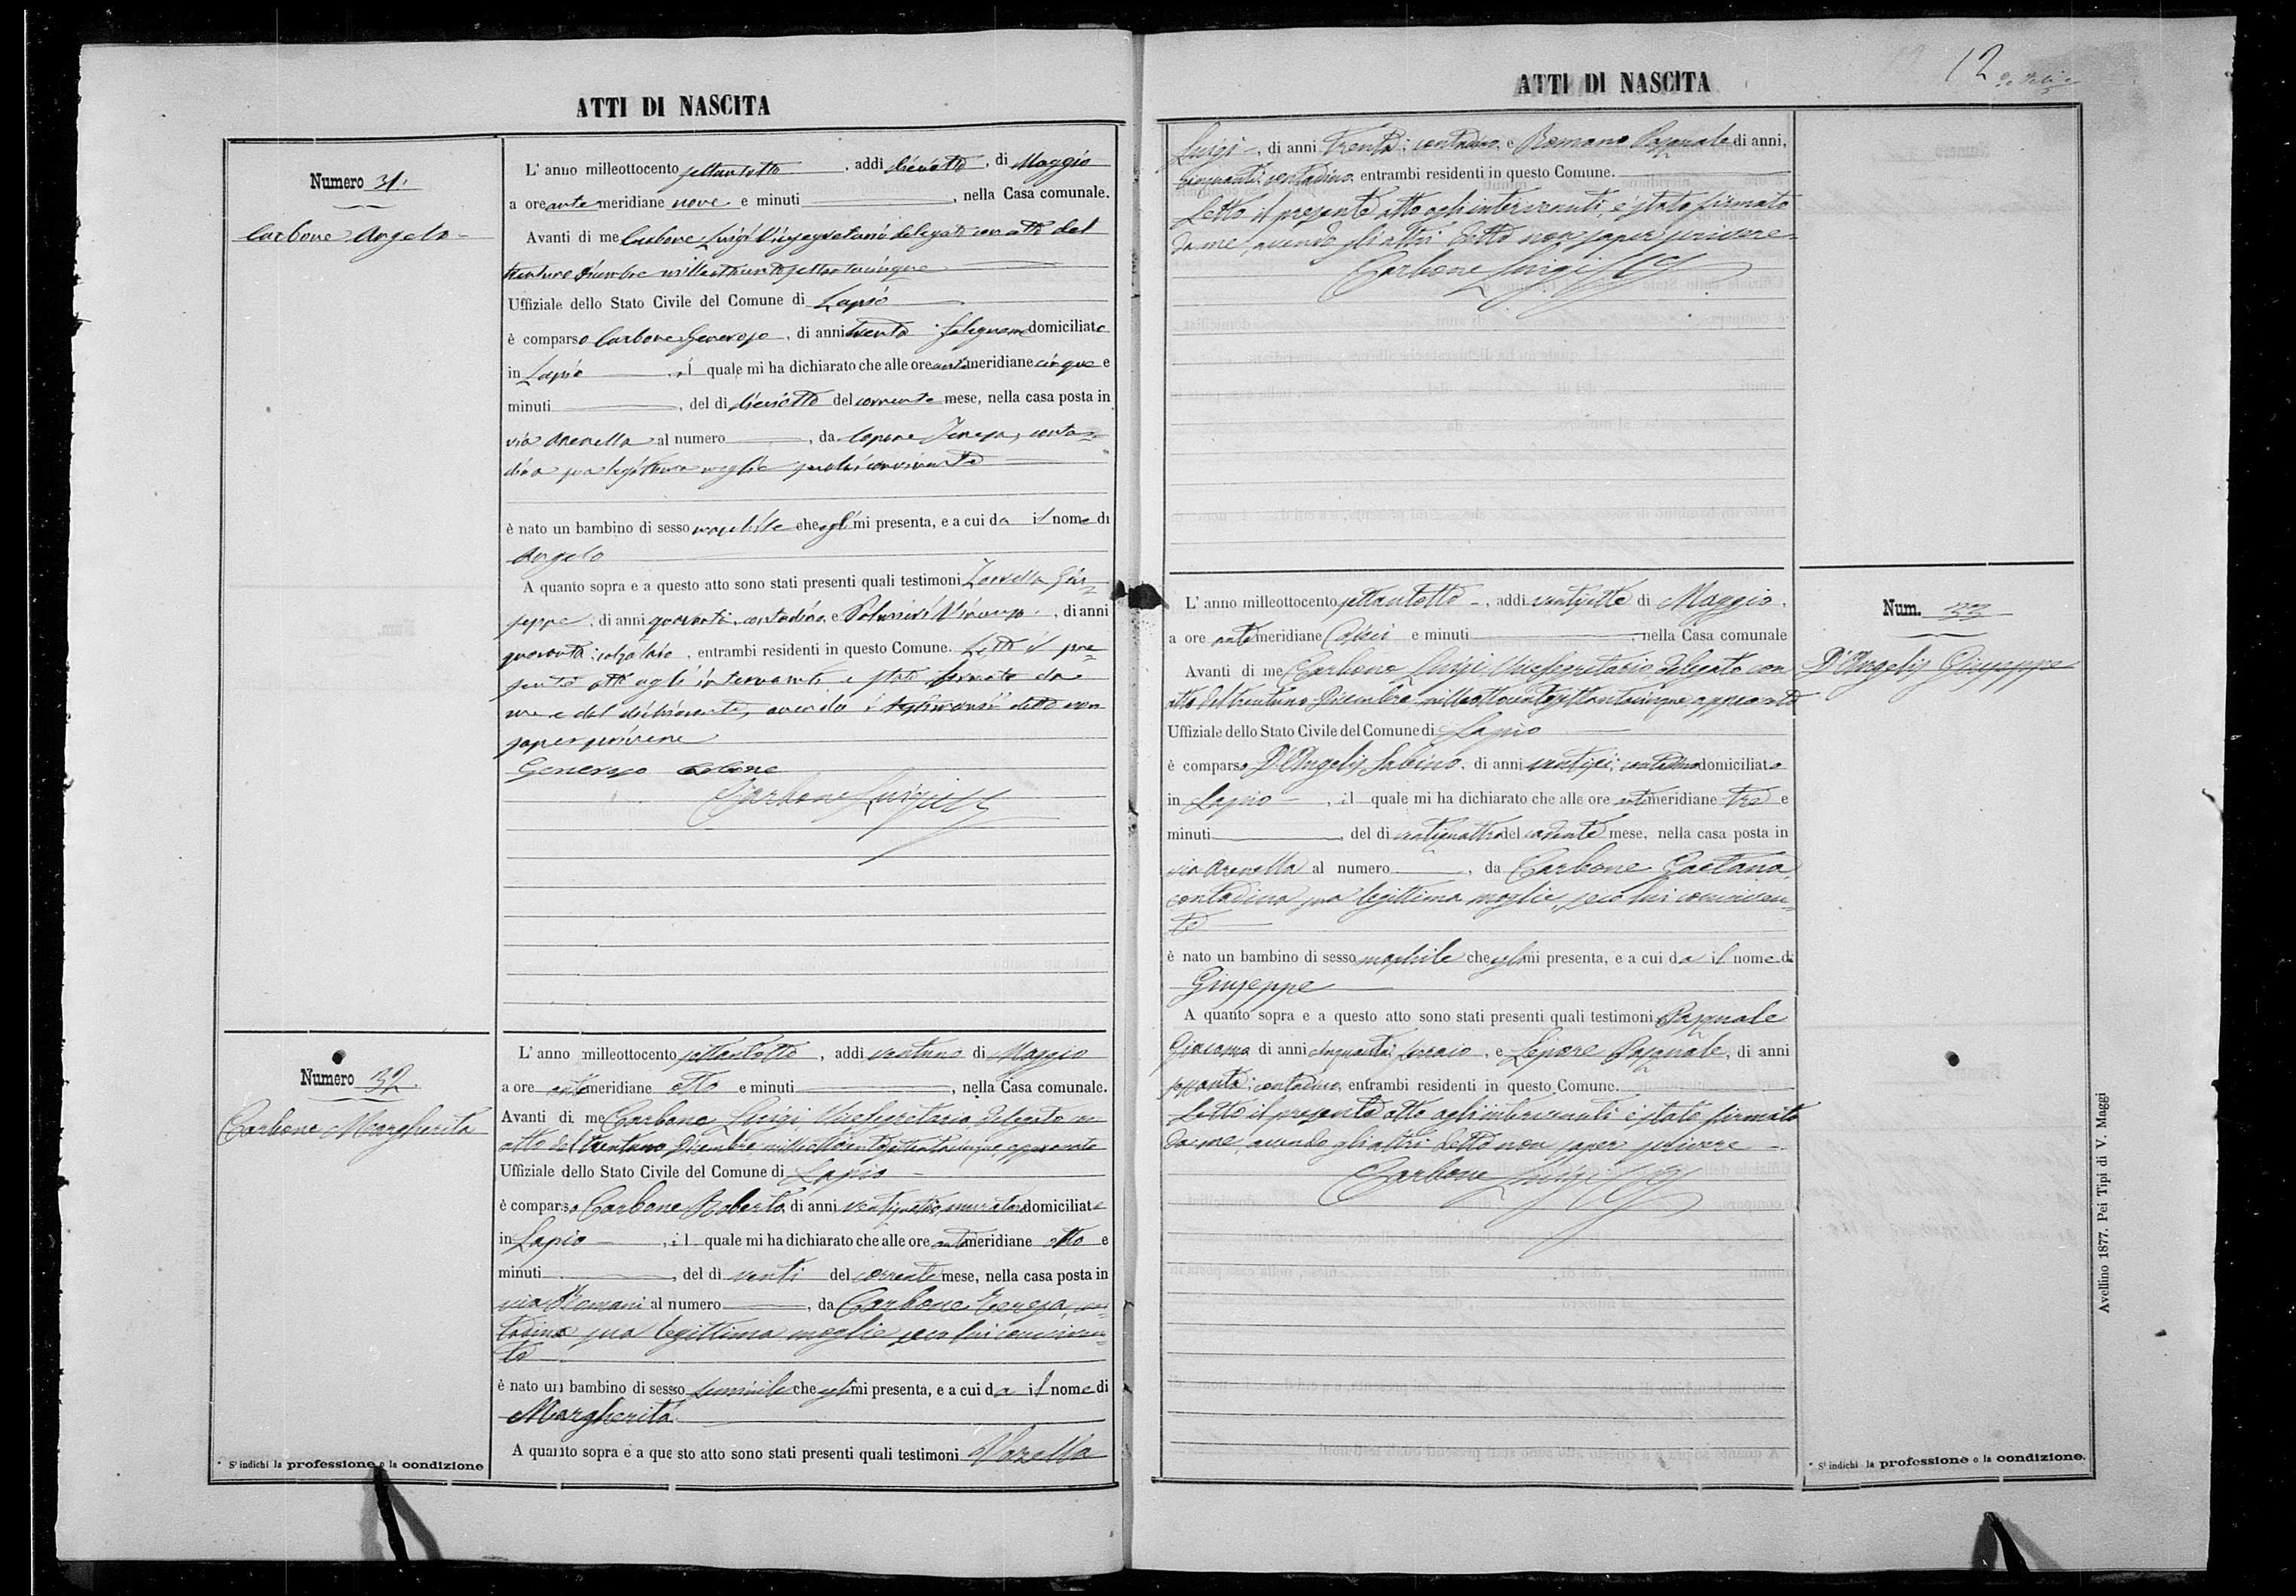 ATTI DI NASCITA
Numero 31.
Carbone Angelo
L'anno milleottocento settantotto, addi dieciotto, di Maggio
a ore antemeridiane nove e minuti, nella Casa comunale.
Avanti di me Carbone Luigi Vicesegretario delegato con atto del
trentuno Dicembre milleottocentosettantacinque
Uffiziale dello Stato Civile del Comune di Lapio
è comparso Carbone Generoso, di anni trenta falegname domiciliato
in Lapio, il quale mi ha dichiarato che alle ore antimeridiane cinque e
minuti, del dì dieciotto del corrente mese, nella casa posta in
via Arenella al numero, da Lepore Teresa, conta-
dina sua legittima moglie seco lui convivente
è nato un bambino di sesso maschile che egli mi presenta, e a cui da il nome di
Angelo
A quanto sopra e a questo atto sono stati presenti quali testimoni Zarrella Giu-
seppe, di anni quaranta, contadino, e Vincenzo, di anni
quaranta, calzolaio, entrambi residenti in questo Comune. Letto il pre-
sente atto agli intervenuti è stato firmato da
me e dal dichiarante, avendo i testimoni detto non
saper scrivere
Generoso Carbone
Carbone Luigi
Numero 32.
Carbone Margherita
L'anno milleottocento settantotto, addi ventuno di Maggio
a ore antemeridiane otto e minuti, nella Casa comunale.
Avanti di me Carbone Luigi Vicesegretario delegato con
atto del trentuno Dicembre milleottocentosettantacinque approvato
Uffiziale dello Stato Civile del Comune di Lapio
è comparso Carbone Roberto, di anni ventiquattro, muratore domiciliato
in Lapio, il quale mi ha dichiarato che alle ore antemeridiane otto e
minuti, del dì venti del corrente mese, nella casa posta in
via Romani al numero, da Carbone Teresa, con-
tadina sua legittima moglie seco lui conviven-
te
è nato un bambino di sesso feminile che egli mi presenta, e a cui da il nome di
Margherita
A quanto sopra e a questo atto sono stati presenti quali testimoni
* Si indichi la professione o la condizione
ATTI DI NASCITA
12
Luigi, di anni trenta, contadino, e Romano Pasquale di anni,
cinquanta, contadino entrambi residenti in questo Comune.
Letto il presente atto agli intervenuti, è stato firmato
da me, avendo gli altri detto non saper scrivere
Carbone Luigi
Num. 33
D'Angelis Giuseppe
L'anno milleottocento settantotto, addi ventisette di Maggio,
a ore antemeridiane e minuti, nella Casa comunale
Avanti di me Carbone Luigi Vicesegretario delegato con
atto del trentuno Dicembre milleottocentosettantacinque approvato
Uffiziale dello Stato Civile del Comune di Lapio
è comparso D'Angelis Sabino, di anni ventisei, contadino domiciliato
in Lapio, il quale mi ha dichiarato che alle ore antemeridiane tre e
minuti, del di ventiquattro del cadente mese, nella casa posta in
via Arenella al numero, da Carbone Gaetana
contadina sua legittima moglie, seco lui conviven-
te
è nato un bambino di sesso maschile che egli mi presenta, e a cui da il nome di
Giuseppe
A quanto sopra e a questo atto sono stati presenti quali testimoni Pasquale
Giacomo di anni cinquanta, e Lepore Pasquale, di anni
sessanta, contadino, entrambi residenti in questo Comune.
Letto il presente atto agli intervenuti è stato firmato
da me, avendo gli altri detto non saper scrivere
Carbone Luigi
* Si indichi la professione o la condizione.
Avellino 1877. Pei Tipi di V. Maggi